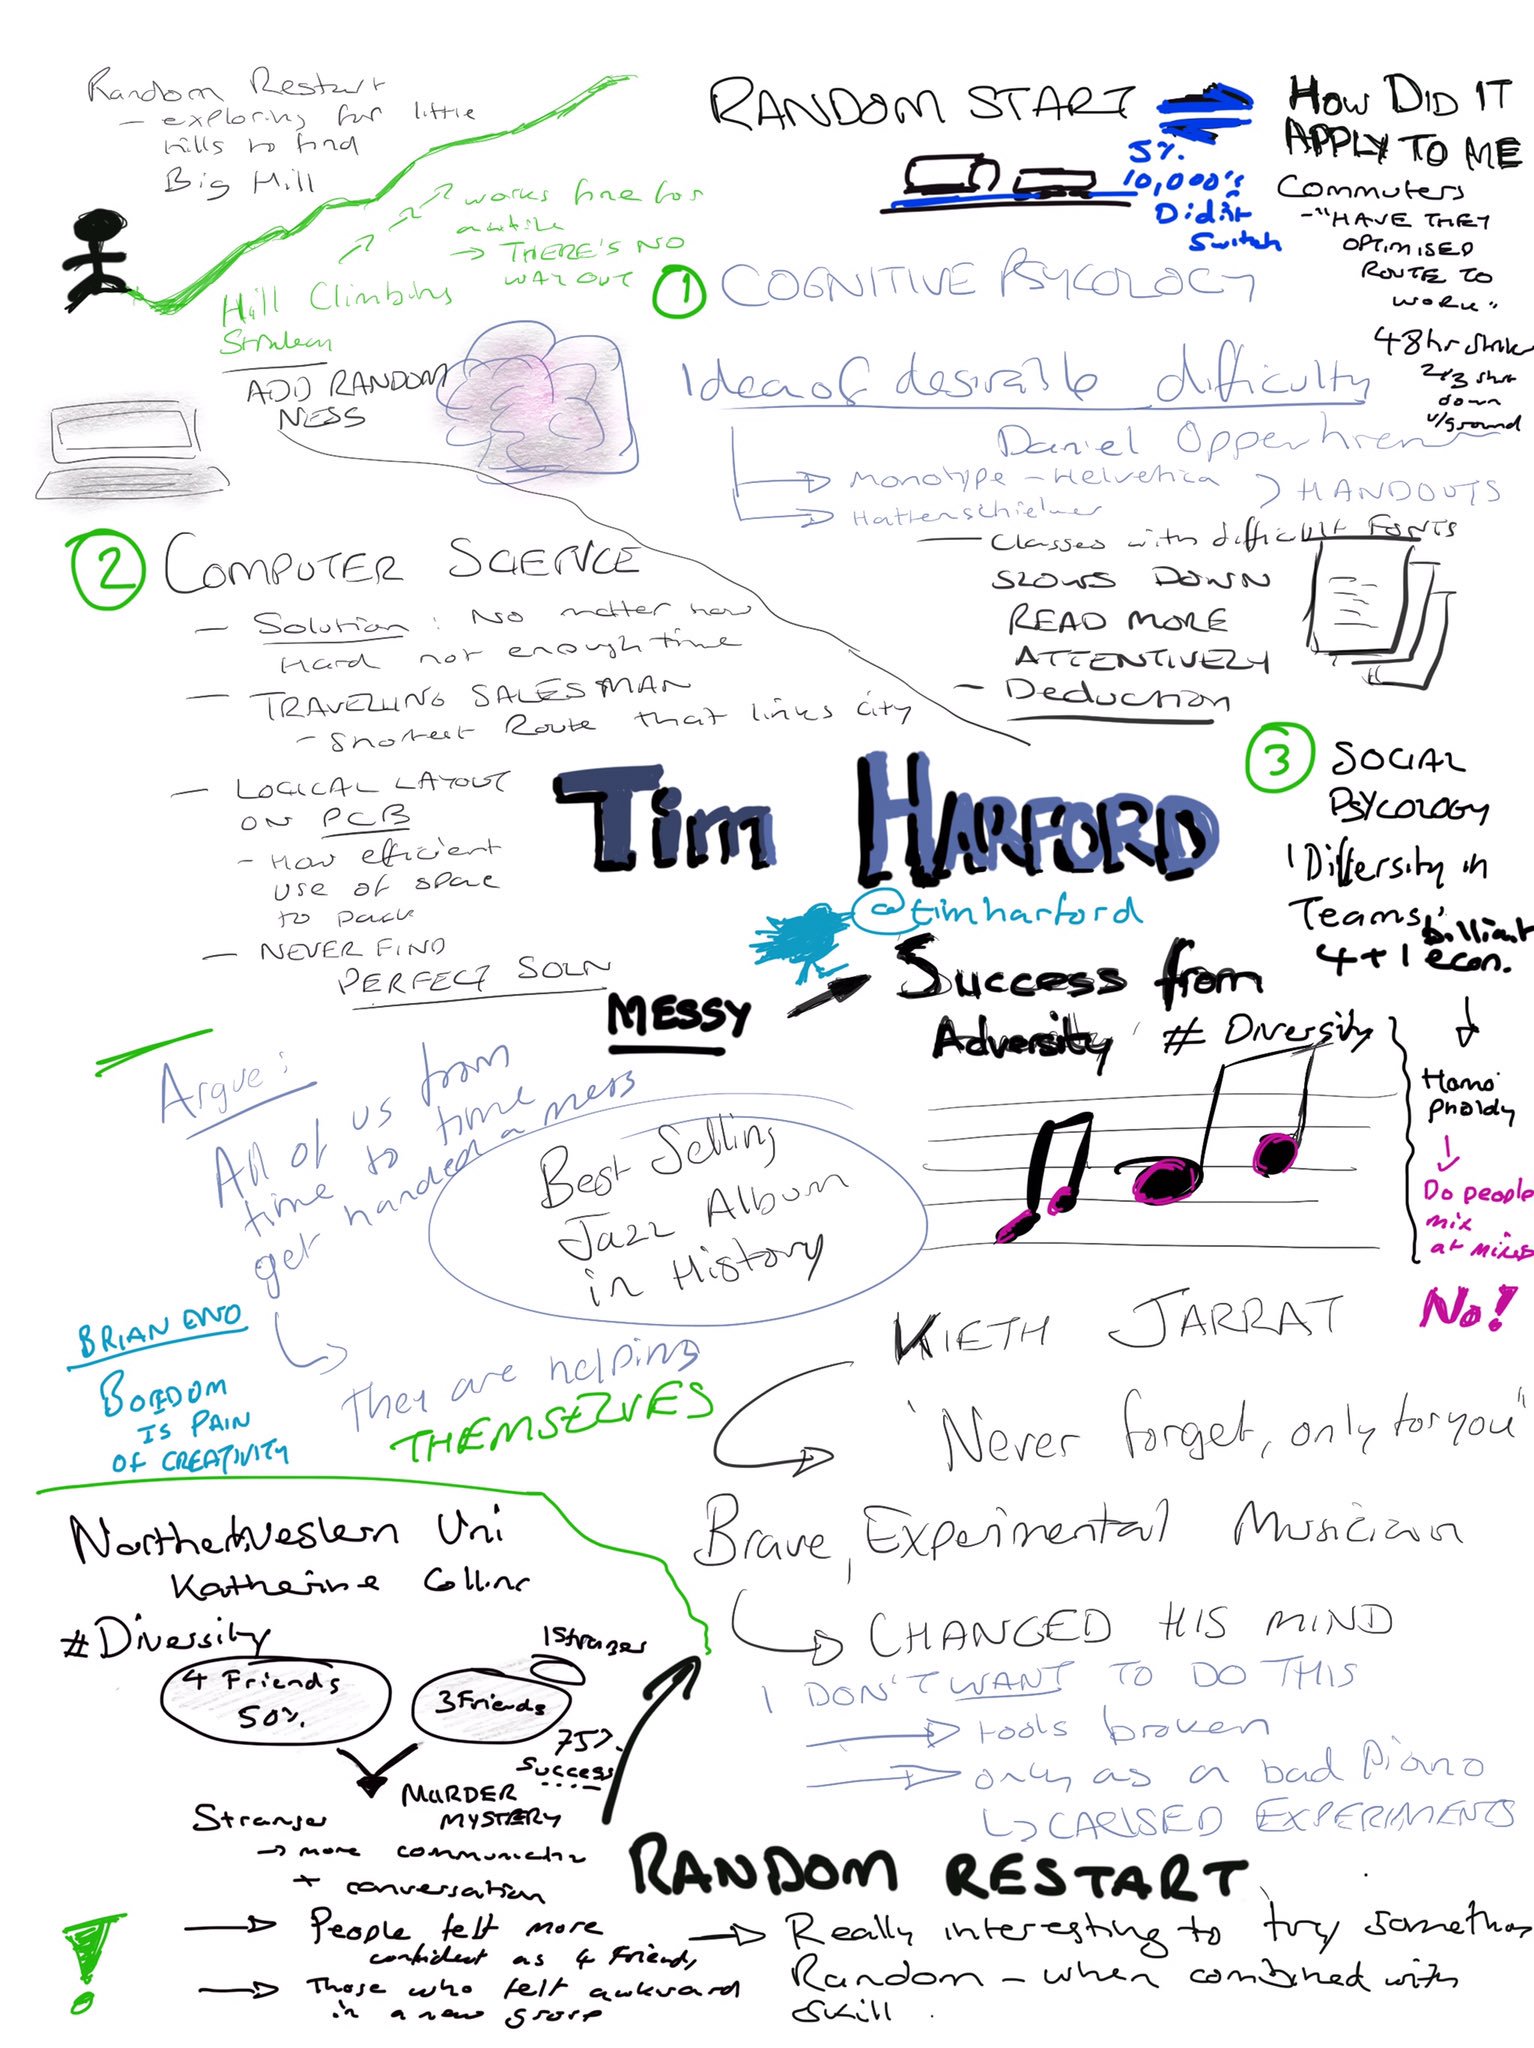 Random Restart
- exploring for little
hills to find
Big Hill
works fine for
awhile
→ THERE'S NO
WAY OUT
Hill Climbing
ADD RANDOM
NESS
RANDOM START
5%
10,000's
Didn't
Switch
HOW DID IT
APPLY TO ME
Commuters
- "HAVE THEY
OPTIMISED
ROUTE TO
WORK"
48hr strike
2/3 shut
down
u/ground
① COGNITIVE PSYCOLOGY
Idea of desirable difficulty
Daniel
Monotype - Helvetica > HANDOUTS
- Classes with difficult FONTS
SLOWS DOWN
READ MORE
ATTENTIVELY
- Deduction
② COMPUTER SCIENCE
- Solution: No matter how
Hard not enough time
- TRAVELLING SALESMAN
- Shortest Route that links city
- LOGICAL LAYOUT
ON PCB
- How efficient
use of space
to pack
- NEVER FIND
PERFECT SOLN
③ SOCIAL
PSYCOLOGY
'Diversity in
Teams'
4 + 1 brilliant
econ.
Do people
mix
at mixers
No!
Tim HARFORD
@timharford
MESSY → Success from
Adversity # Diversity
Argue:
All of us from
time to time
get handed a mess
They are helping
THEMSELVES
Best Selling
Jazz Album
in History
BRIAN ENO
BOREDOM
IS PAIN
OF CREATIVITY
KIETH JARRAT
'Never forget, only for you"
Brave, Experimental Musician
CHANGED HIS MIND
I DON'T WANT TO DO THIS
→ tools broken
→ only as a bad Piano
EXPERIMENTS
Uni
Katherine
#Diversity
4 Friends
50%
1 Stranger
3 Friends
75%
Success
MURDER
MYSTERY
Stranger
→ more
+ conversation
→ People felt more
confident as 4 Friends
→ Those who felt awkward
in a new group
RANDOM RESTART
→ Really interesting to try something
Random - when combined with
skill.